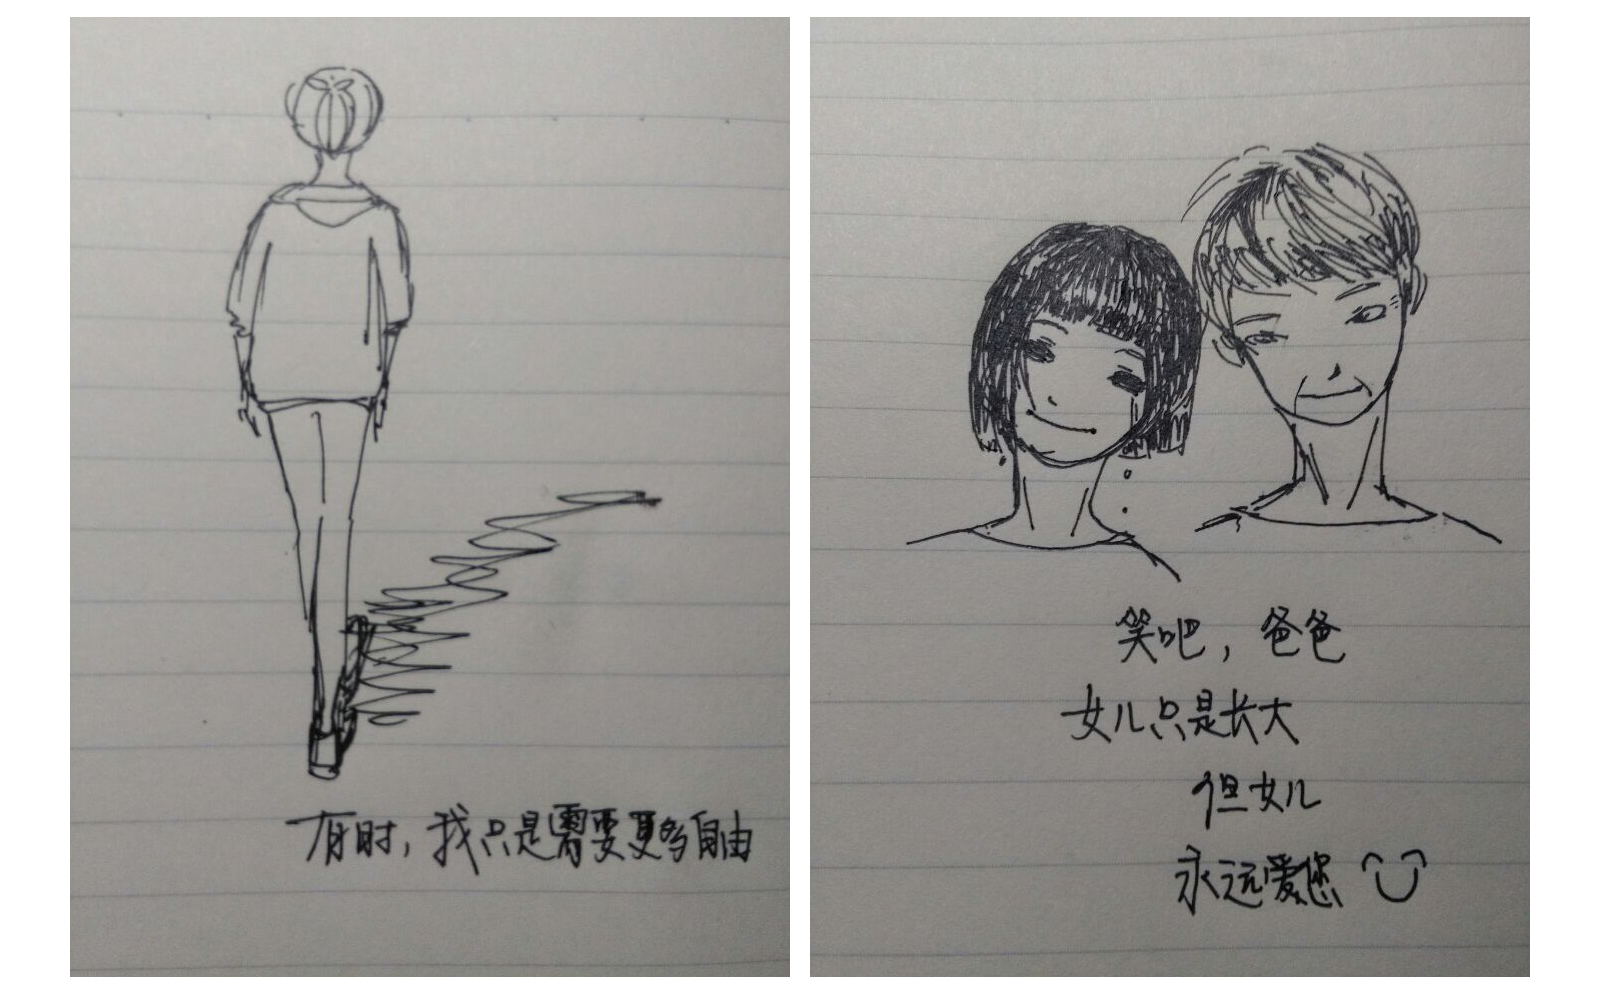 有时，我只是需要更多自由
笑吧，爸爸
女儿只是长大
但女儿
永远爱您